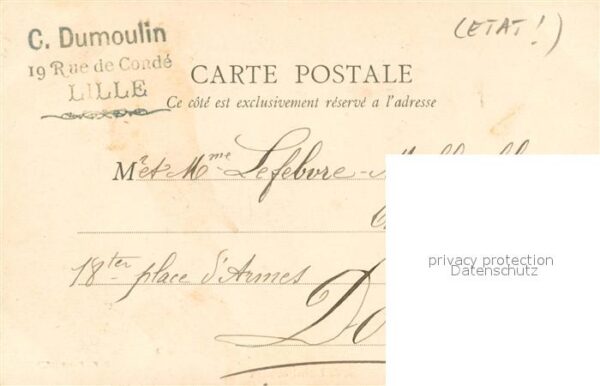 C. Dumoulin
19 Rue de Condé
LILLE
(ETAT!)
CARTE POSTALE
Ce côté est exclusivement réservé a l'adresse
Mr et Mme Lefebvre-
18ter place d'Armes
privacy protection
Datenschutz